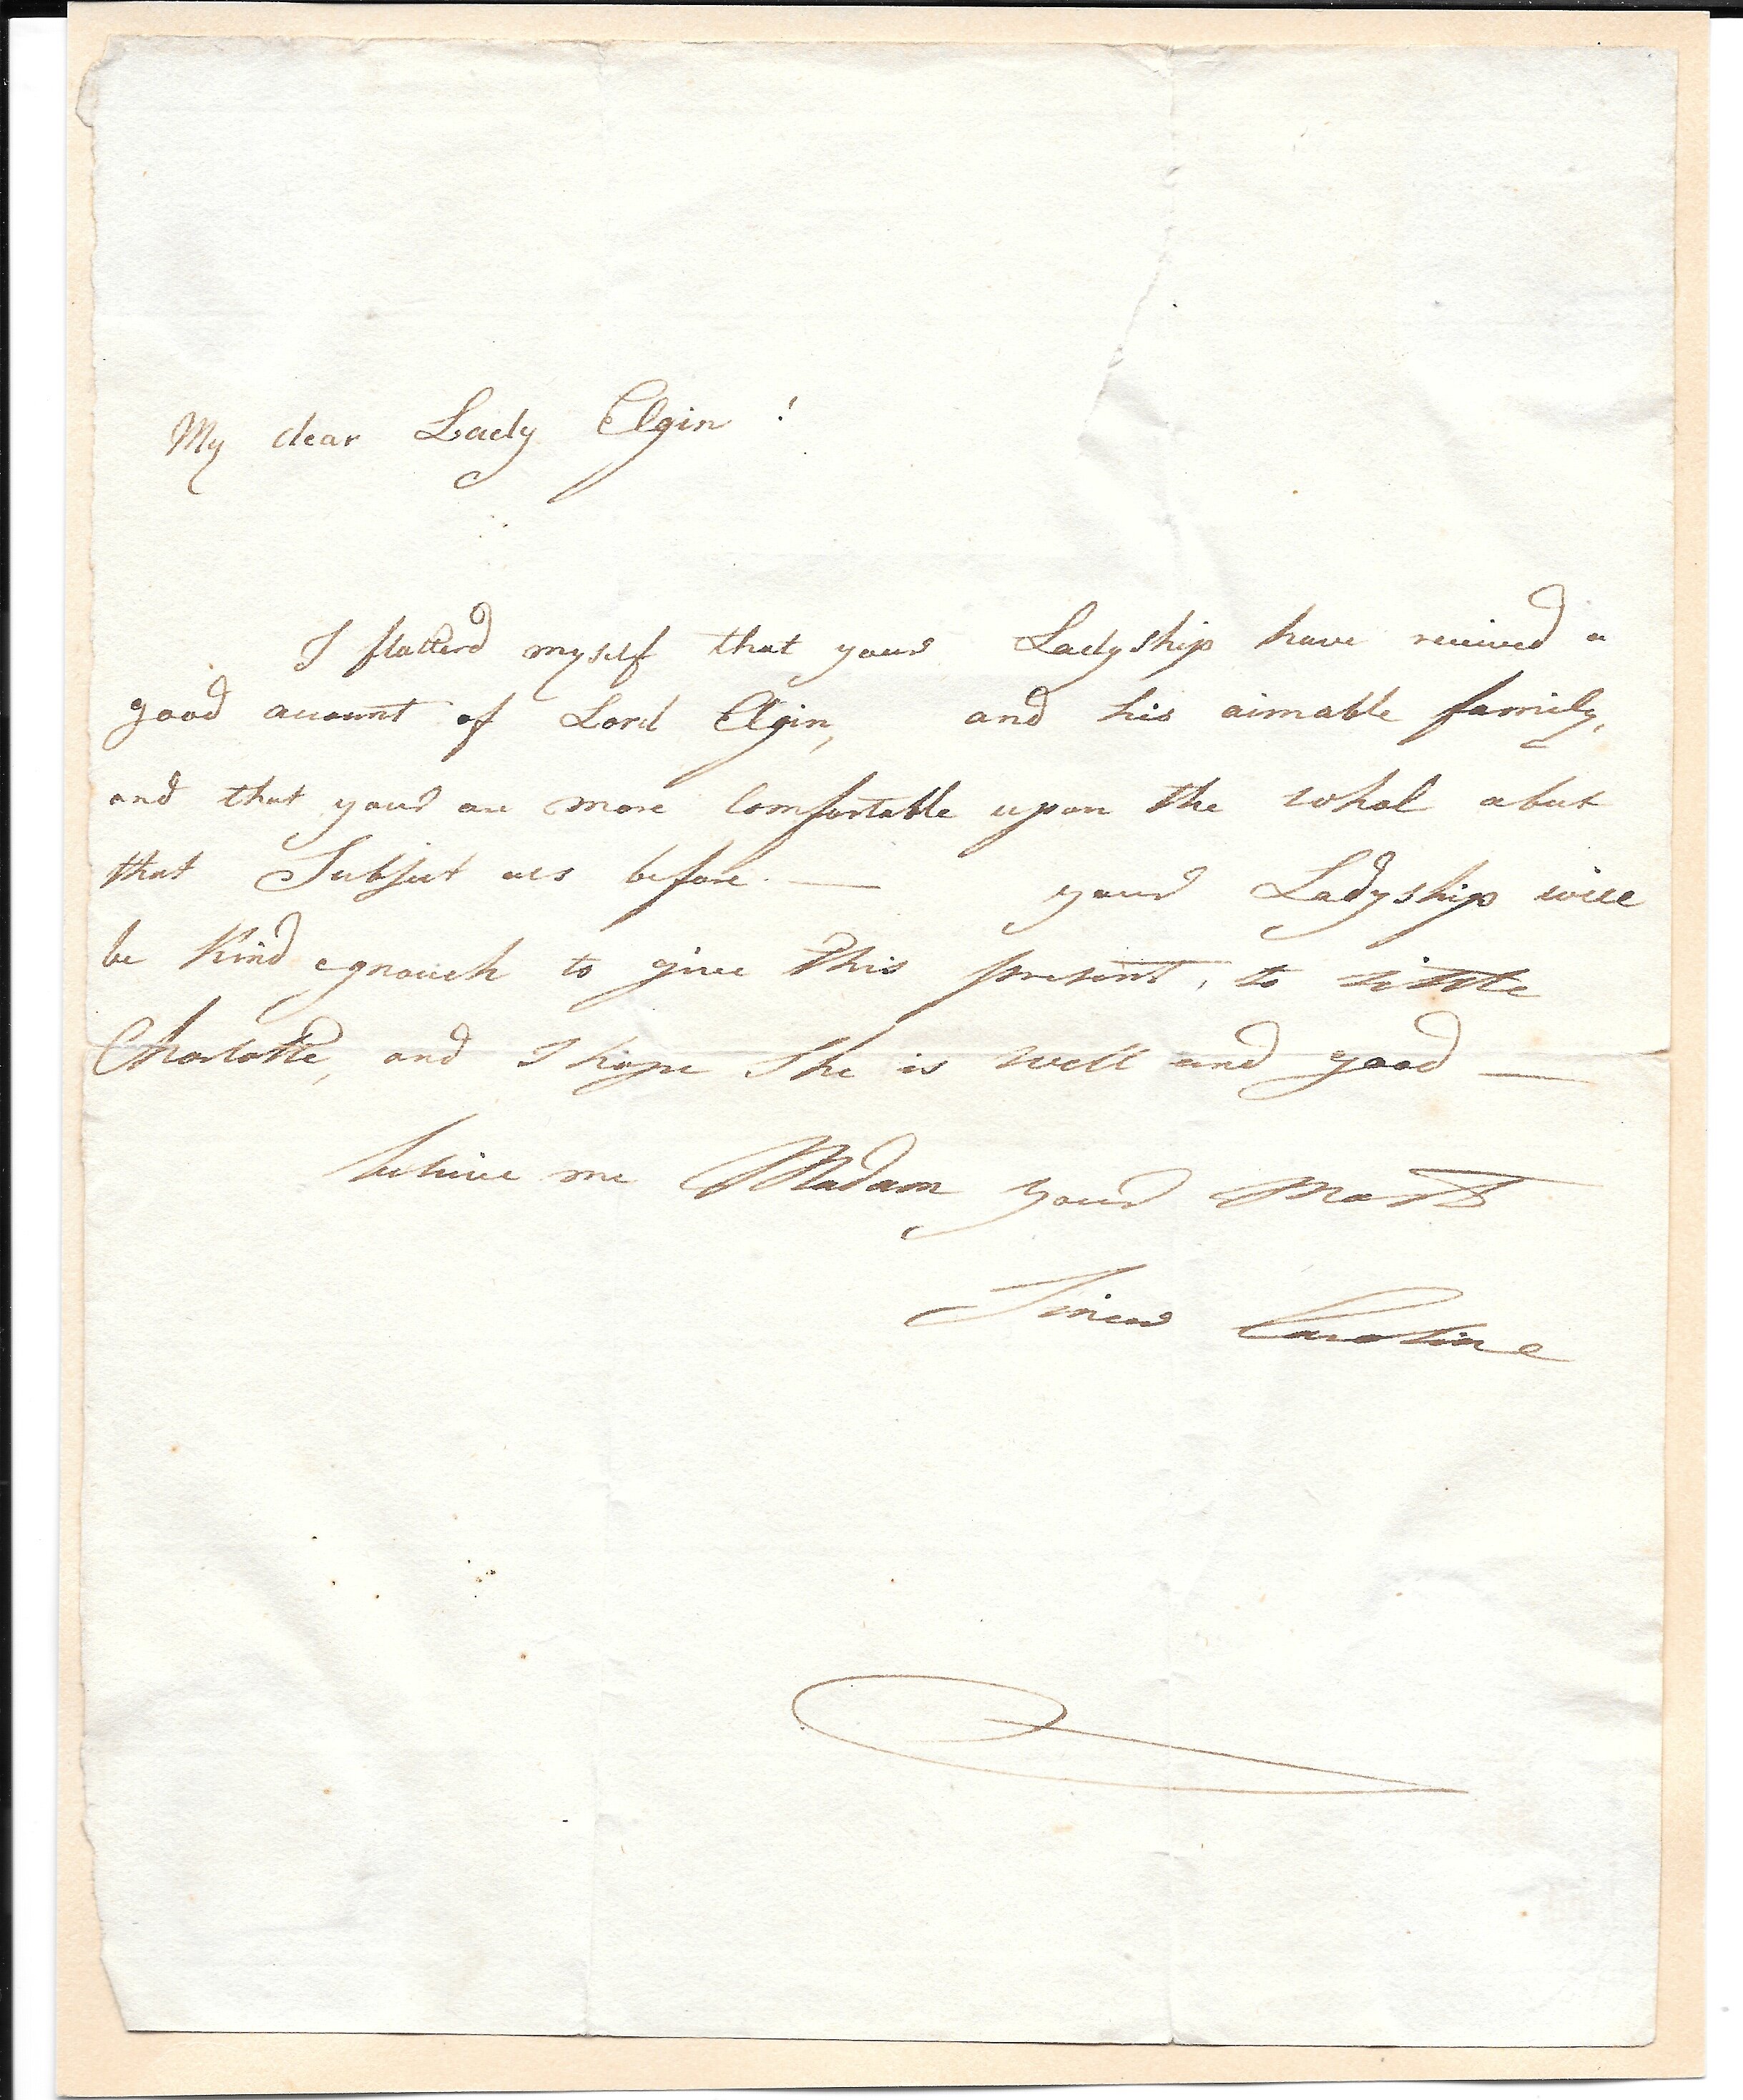 My dear Lady Elgin !
I flatterd myself that your Ladyship have recieved a
good account of Lord Elgin, and his aimable family,
and that your are more Comfortable upon the whol abut
that Subject as before. — your Ladyship will
be Kind egnouch to give this present, to little
Charlotte, and I hope She is well and good —
belieive me Madam your most
Sincer Caroline